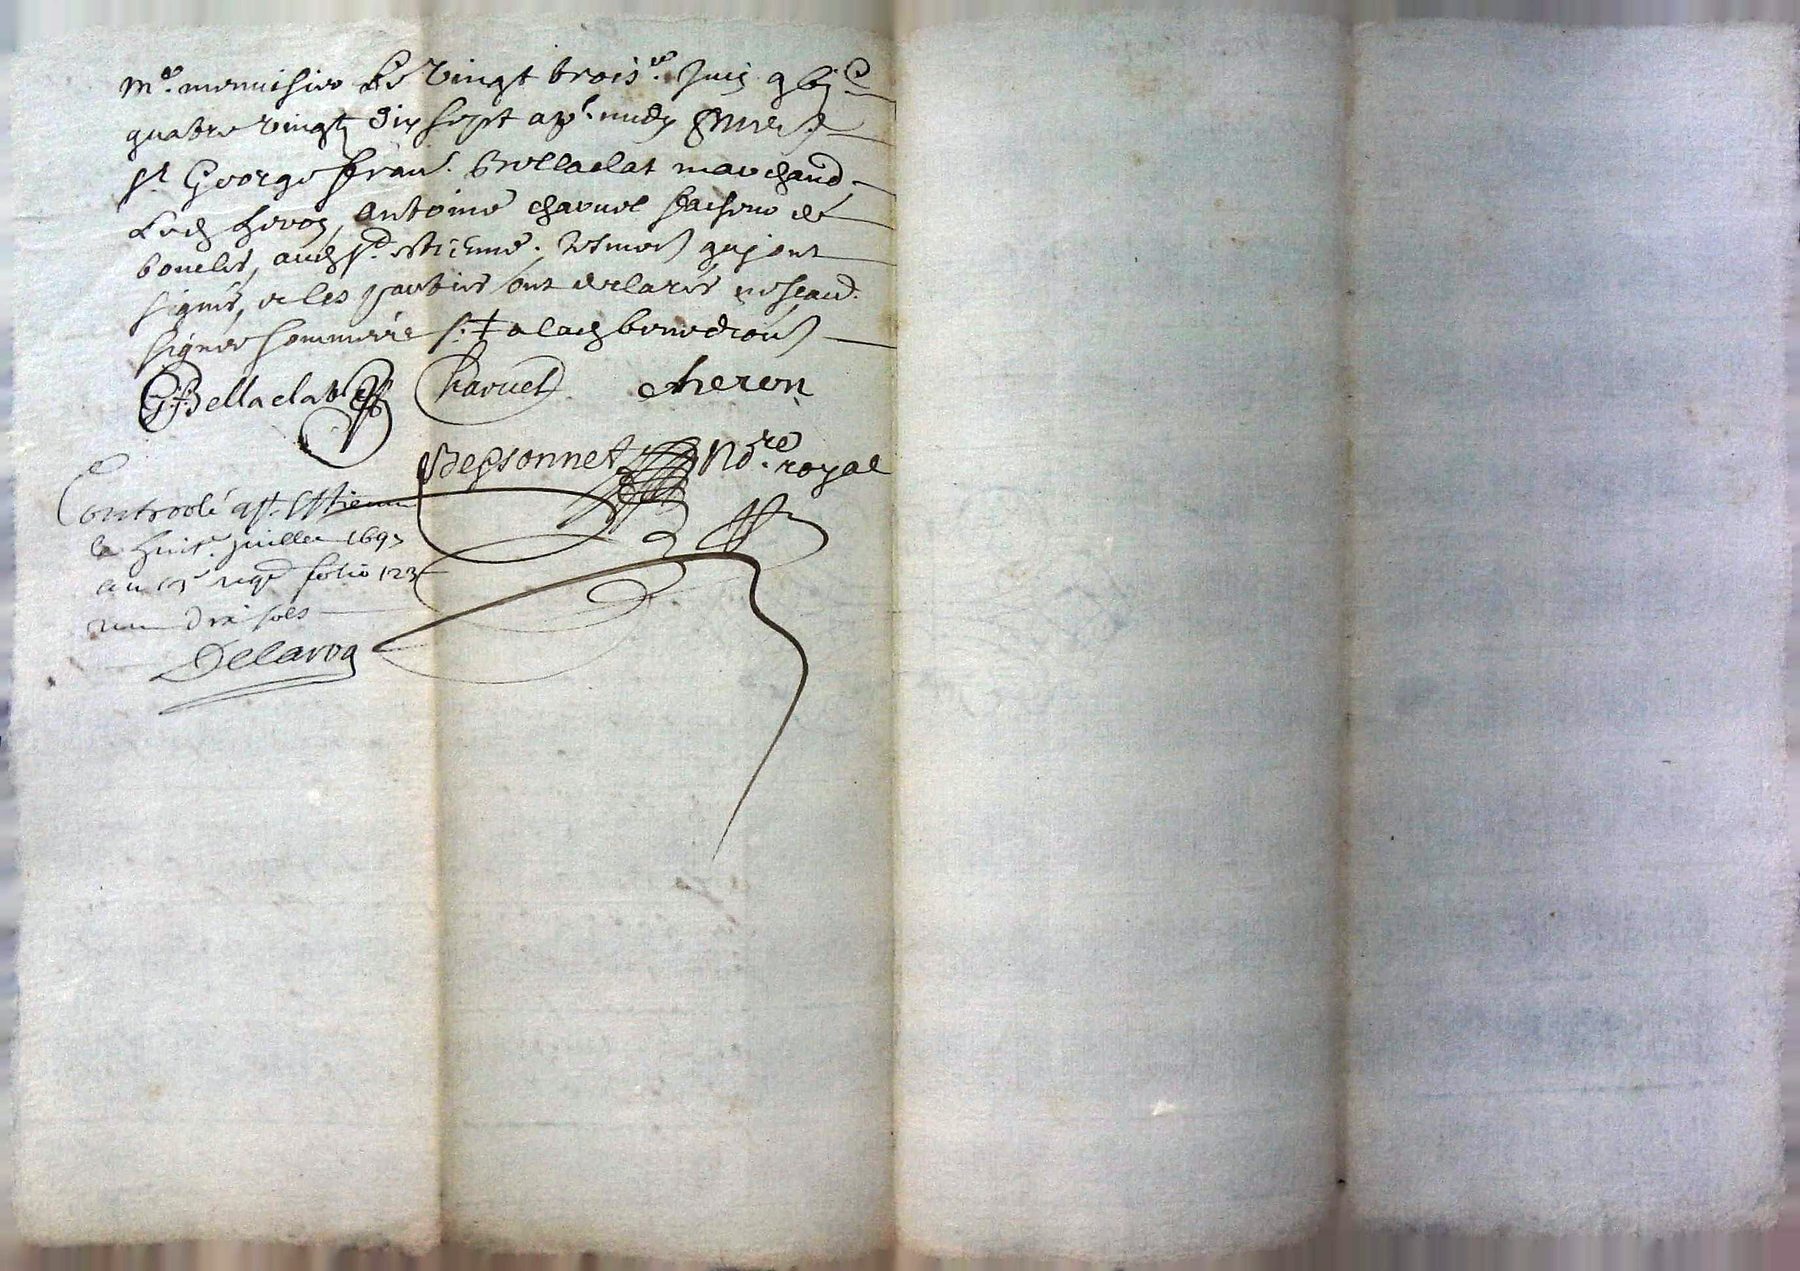 m.e menuisier Le vingt trois.e Juin
quatre vingt dix sept ap.s midy
s.r George fran. Bellaclat marchand
Antoine charvet faiseur de
boucles, aud s.t estienne. tesmoins qui ont
signés, et les parties ont declarés ne scavoir
signer sommeés
G.F.Bellaclat Charvet cheron
Bessonnet No.re royal
Controolé a St Estienne
le huit.e juillet 1697
au reg.e folio 123
dix sols
Delaroa